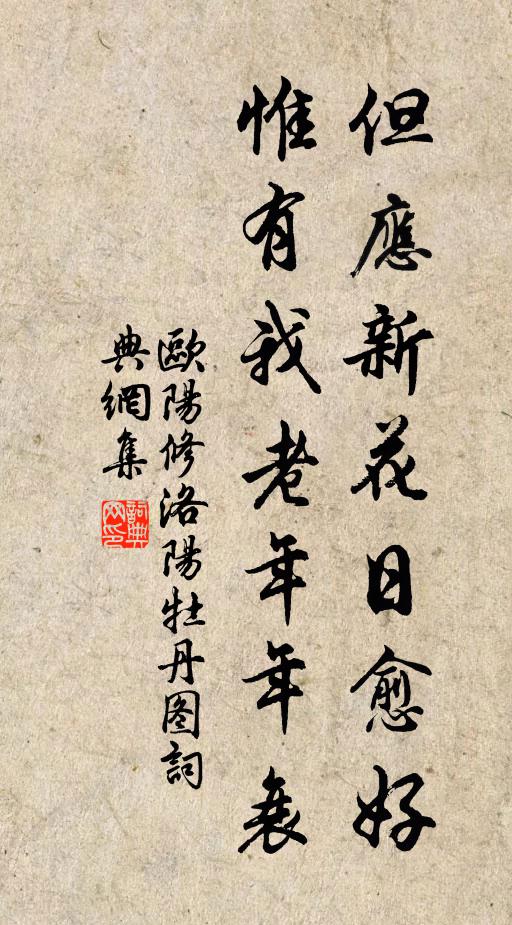 但應新花日愈好
惟有我老年年衰
歐陽修洛陽牡丹图詞
典網集
詞典
网印